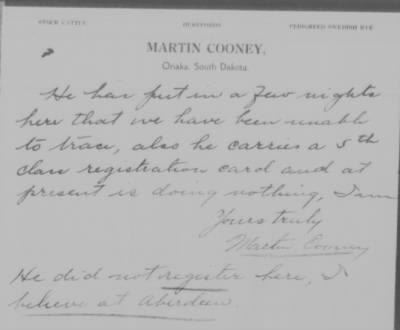 STOCK CATTLE HEREFORDS PEDIGREED SWEDISH RYE
MARTIN COONEY,
Onaka, South Dakota.
He has put in a few nights
here that we have been unable
to trace, also he carries a 5th
class registration card and at
present is doing nothing, I am
Yours truly
Martin Cooney
He did not register here, I
believe at Aberdeen.